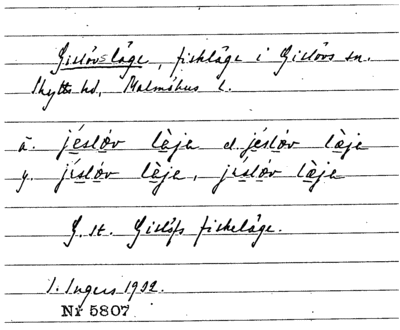 Gislövsläge, fiskläge i Gislövs sn.
Skytts hd, Malmöhus l.
ä. jèsløv lèje el. jèsløv læje
y. jisløv lèje, jisløv læje
G. st. Gislöfs fiskeläge.
I. Ingers 1932.
Nr 5807